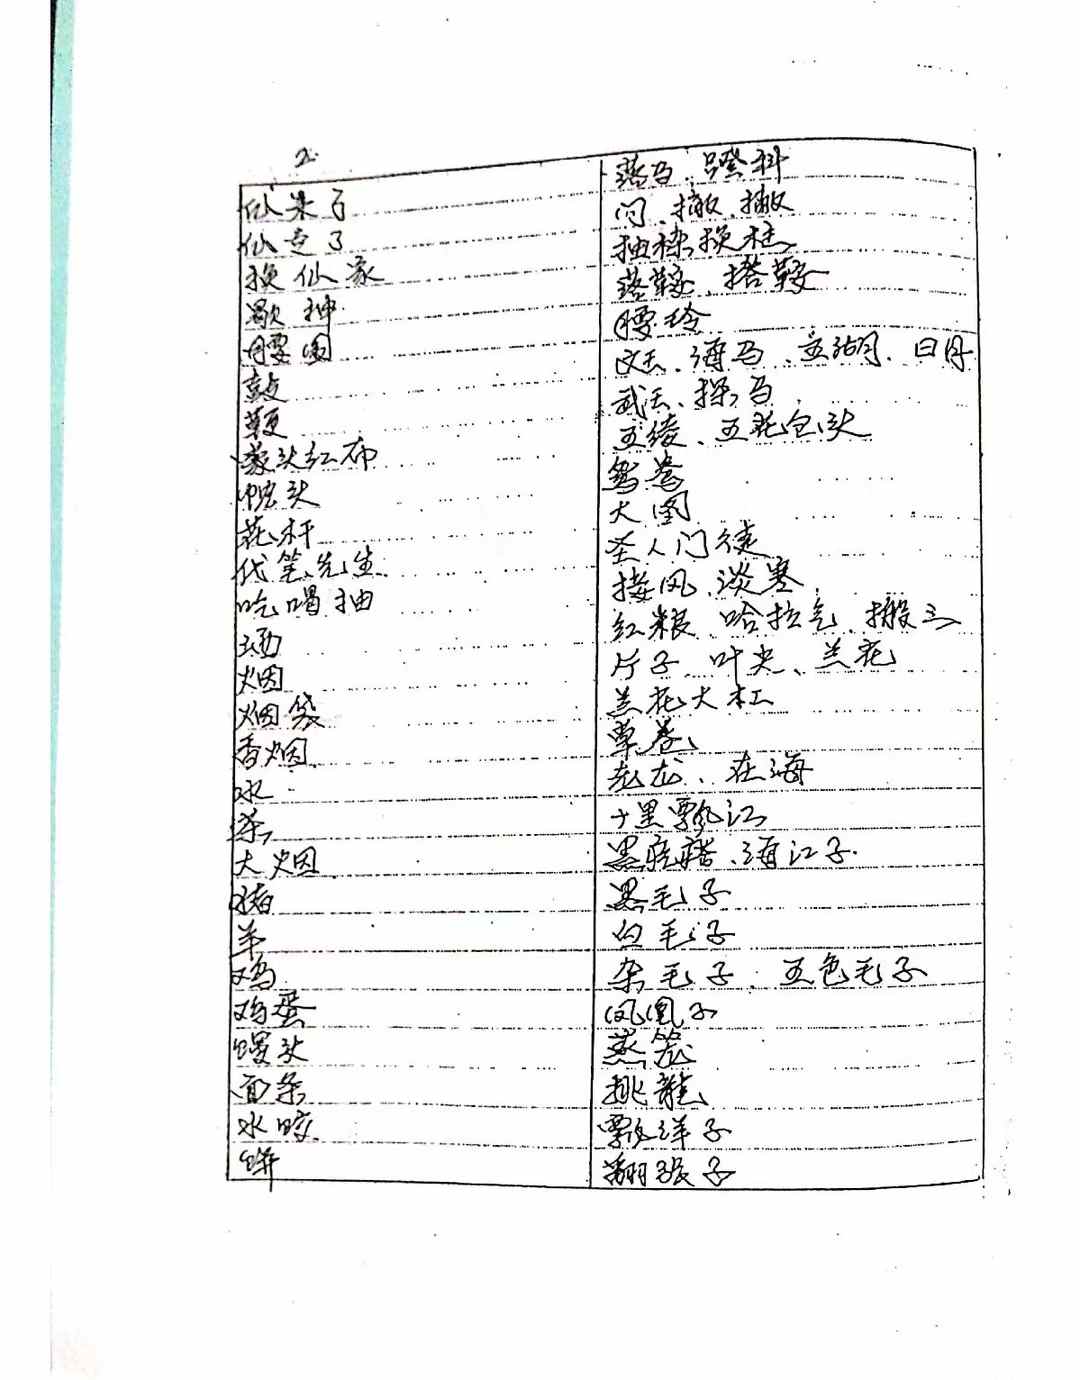 2.
仙来了 落马、蹬科
仙走了 闩、撤、撤
换仙家 抽梁换柱
歇神 落鞍、搭鞍
腰圈 腰玲
鼓 文王、海马、五湖、日月
鞭 武王、探马
蒙头红布 五绫、五花包头
幌头 鸳鸯
花杆 大图
代笔先生 圣人门徒
吃喝抽 接风、淡寒
酒 红粮、哈拉气、搬三
烟 片子、叶尖、兰花
烟袋 兰花大杠
香烟 草卷
水 老龙、在海
茶 十里飘江
大烟 海江子
猪 黑毛子
羊 白毛子
鸡 杂毛子、五色毛子
鸡蛋 凤凰子
馒头 蒸笼
面条 挑龍
水饺 飘洋子
饼 翻张子